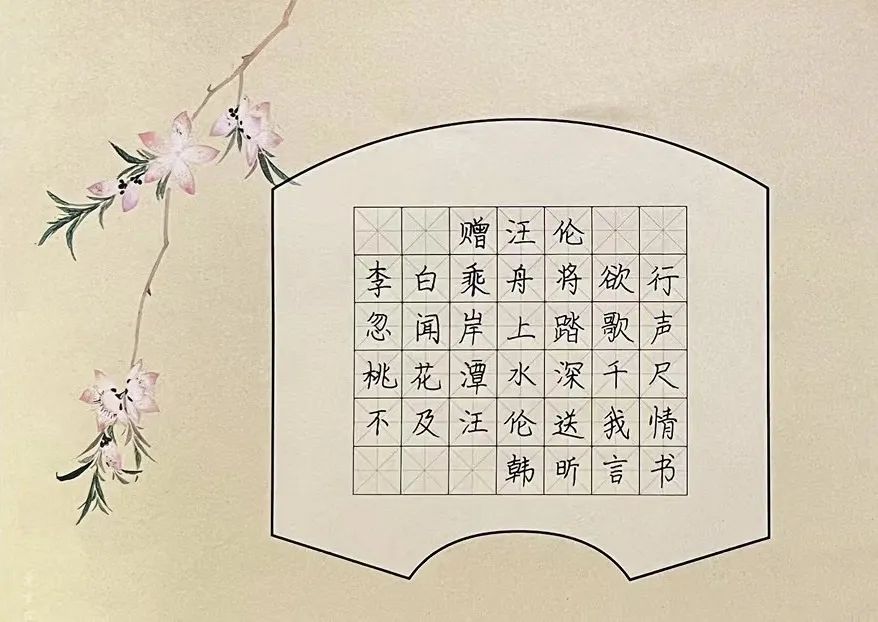 赠汪伦
李白乘舟将欲行
忽闻岸上踏歌声
桃花潭水深千尺
不及汪伦送我情
韩昕言书